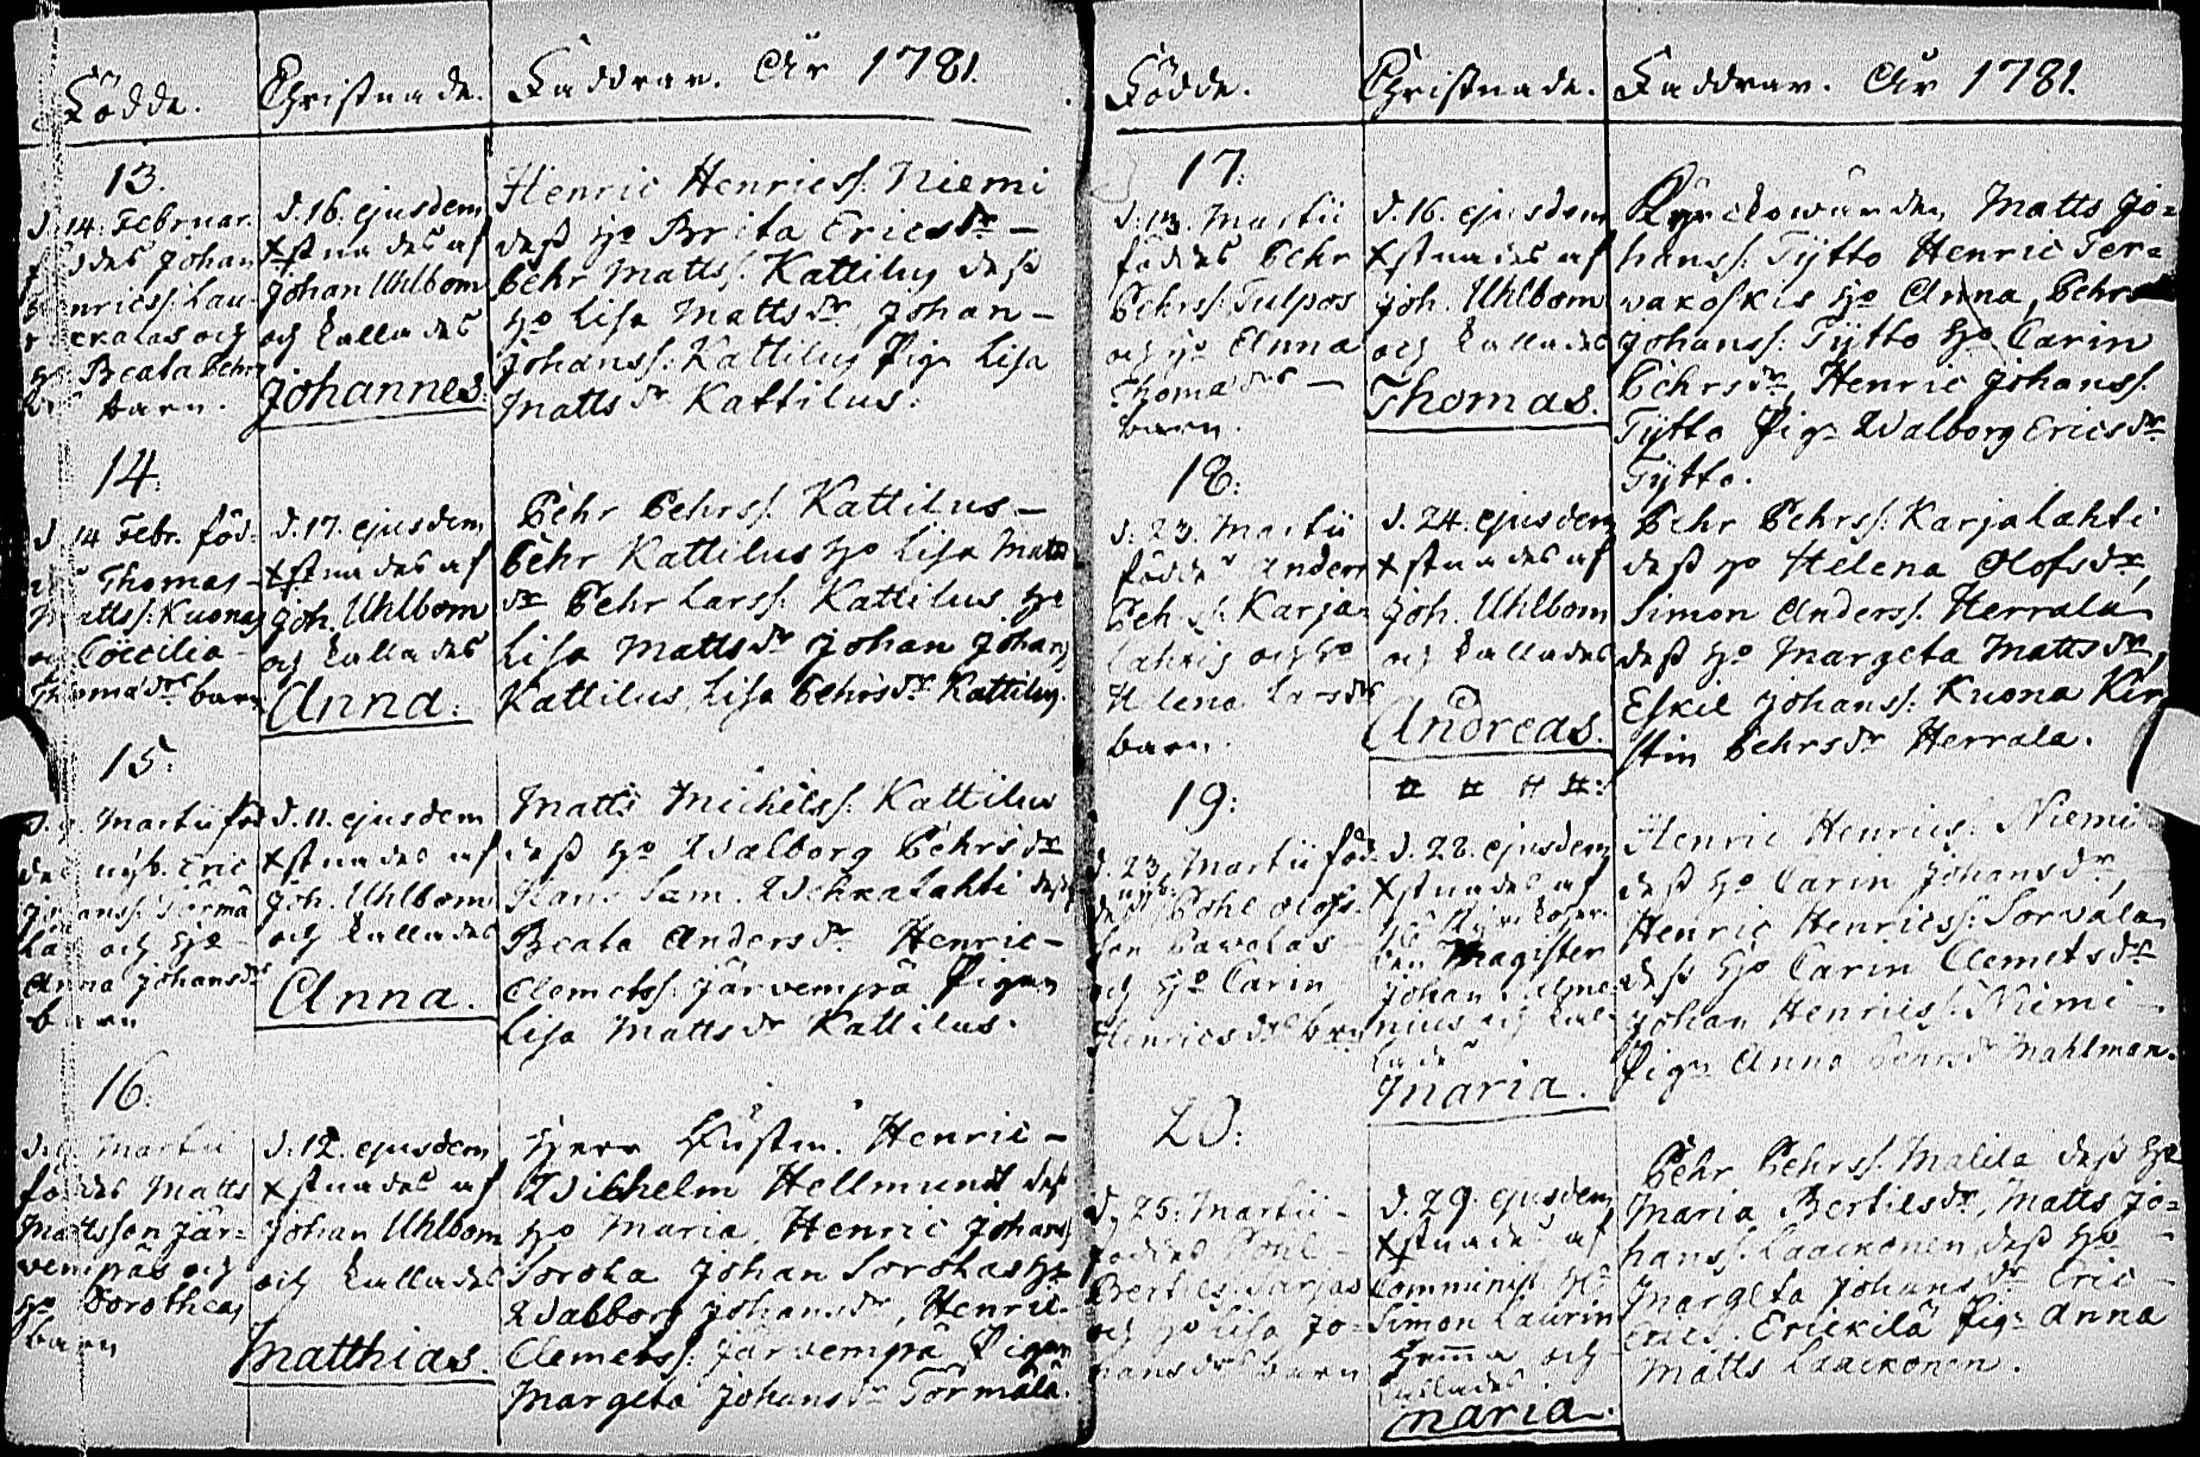 Födde. Christnade. Faddrar. År 1781.
13.
d. 14. Februar.
Johan
Henricss. Lau-
och
Beata Pehrs
barn.
d. 16. ejusdem
Xstnades af
Johan Uhlbom
och kallades
Johannes.
Henric Henricss. Niemi
dess Ho Brita Ericsdr –
Pehr Mattss. Kattilus dess
Ho Lisa Mattsdr, Johan –
Johanss. Kattilus Pig. Lisa
Mattsdr Kattilus.
14.
d. 14 Febr. föd-
Thomas
Mattss. Kuonas
och Cöecilia –
Thomædrs barn
d. 17. ejusdem
Xstnades af
Joh. Uhlbom
och kallades
Anna.
Pehr Pehrss. Kattilus –
Pehr Kattilus Ho Lisa Matts
dr Pehr Larss. Kattilus Ho
Lisa Mattsdr Johan Johans
Kattilus, Lisa Pehrsdr Kattilus.
15.
Martii föd
des nyb. Eric
Johanss. Törmä
lä och Ho
Anna Johansdrs
barn
d. 11. ejusdem
Xstnades af
Joh. Uhlbom
och kallades
Anna.
Matts Michelss. Kattilus
dess Ho Walborg Pehrsdr
Sam. Wehkalahti dess
Beata Andersdr Henric –
Clemetss. Järvempä Pigan
Lisa Mattsdr Kattilus.
16.
Martii
föddes Matts
Mattsson Jär-
venpäs och
Ho Dorotheas
barn
d. 12. ejusdem
Xstnades af
Johan Uhlbom
och kallades
Matthias.
Herr Henric –
Wilhelm Hellmundt dess
Ho Maria, Henric Johans
Soroka Johan Sorokas Ho
Walborg Johansdr, Henric
Clemetss. Järvempä Pigan
Margeta Johansdr Törmälä.
Födde. Christnade. Faddrar. År 1781.
17.
d. 13. Martii
föddes Pehr
Pehrss. Tulpos
och Ho Anna
Thomædrs –
barn.
d. 16. ejusdem
Xstnades af
Joh. Uhlbom
och kallades
Thomas.
Kyrckowärden Matts Jo-
hanss. Tytto Henric Ter-
vakoskis Ho Anna, Pehr
Johanss. Tytto Ho Carin
Pehrsdr, Henric Johanss.
Tytto Pig. Walborg Ericsdr
Tytto.
18.
d. 23. Martii
föddes Anders
Pehrss. Karja-
lahtis och Ho
Helena Larsdrs
barn.
d. 24. ejusdem
Xstnades af
Joh. Uhlbom
och kallades
Andreas.
Pehr Pehrss. Karjalahti
dess Ho Helena Olofsdr,
Simon Anderss. Herrala
dess Ho Margeta Mattsdr,
Eskil Johanss. Kuona Kir
stin Pehrsdr Herrala.
19.
d. 23. Martii föd-
des nyb. Pohl Olofs-
son Pavolas
och Ho Carin
Henricsdrs barn
# # # #:
d. 28. ejusdem
Xstnades af
Magister
Johan
nius och kal-
lades
Maria.
Henric Henricss. Niemi
dess Ho Carin Johansdr,
Henric Henricss. Sorvala
dess Ho Carin Clemetsdr
Johan Henricss. Niemi
Pign Anna Mahlman.
20.
d. 25. Martii –
föddes Pohl –
Bertilss. Sarjas
och Ho Lisa Jo-
hansdrs barn
d. 29. ejusdem
Xstnades af
Comminist. Hr
Simon Laurin
Hemma och
kallades.
Maria.
Pehr Pehrss. Malila dess Ho
Maria Bertilsdr, Matts Jo-
hanss. Laackonen dess Ho
Margeta Johansdr Eric –
Ericss. Erickilä Pig. Anna
Matts Laackonen.